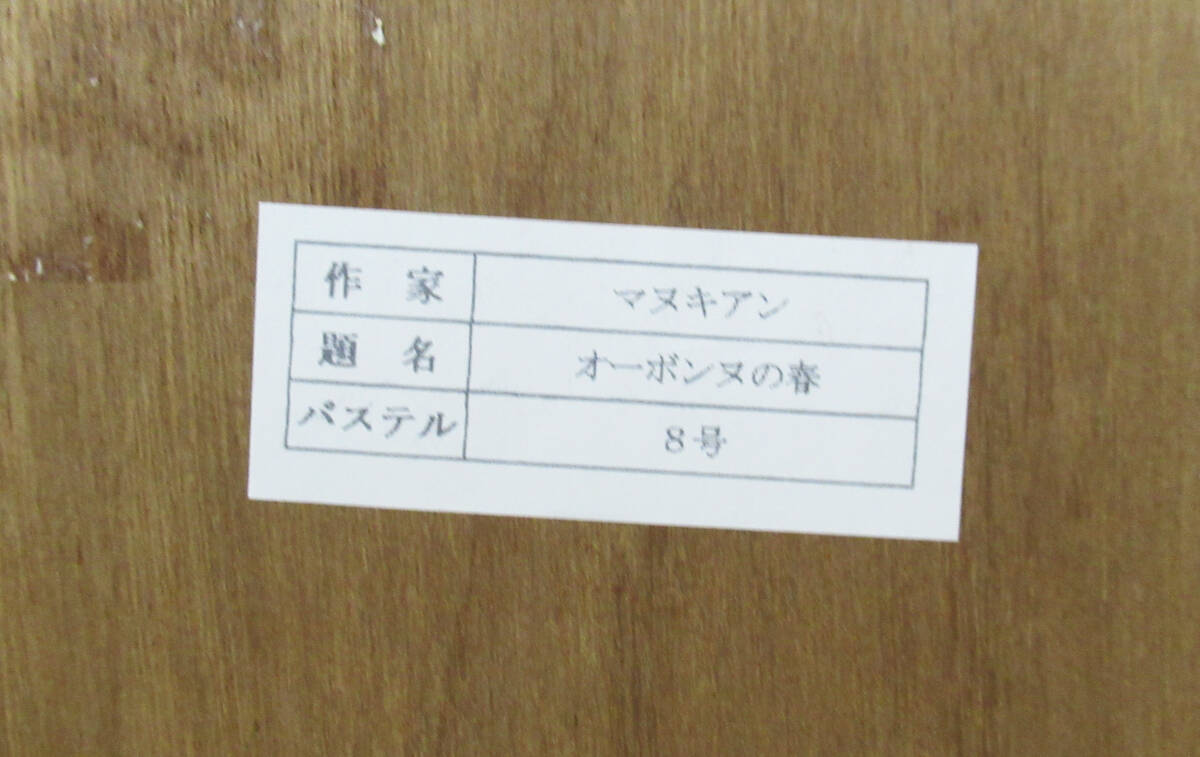 作　家　マヌキアン
題　名　オーボンヌの春
パステル　８号